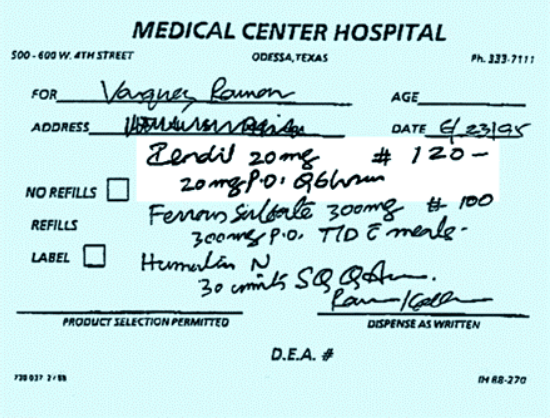 MEDICAL CENTER HOSPITAL
500 - 600 W. 4TH STREET ODESSA, TEXAS Ph. 333-7111
FOR Vasquez, Ramon AGE
ADDRESS DATE 6/23/95
20 mg # 120 -
20 mg P.O. Q6hours
NO REFILLS
Ferrous Sulfate 300mg # 100
REFILLS
300mg P.O. TID c meals -
LABEL
Humulin N
30 units SQ
PRODUCT SELECTION PERMITTED DISPENSE AS WRITTEN
D.E.A. #
IH RB-270